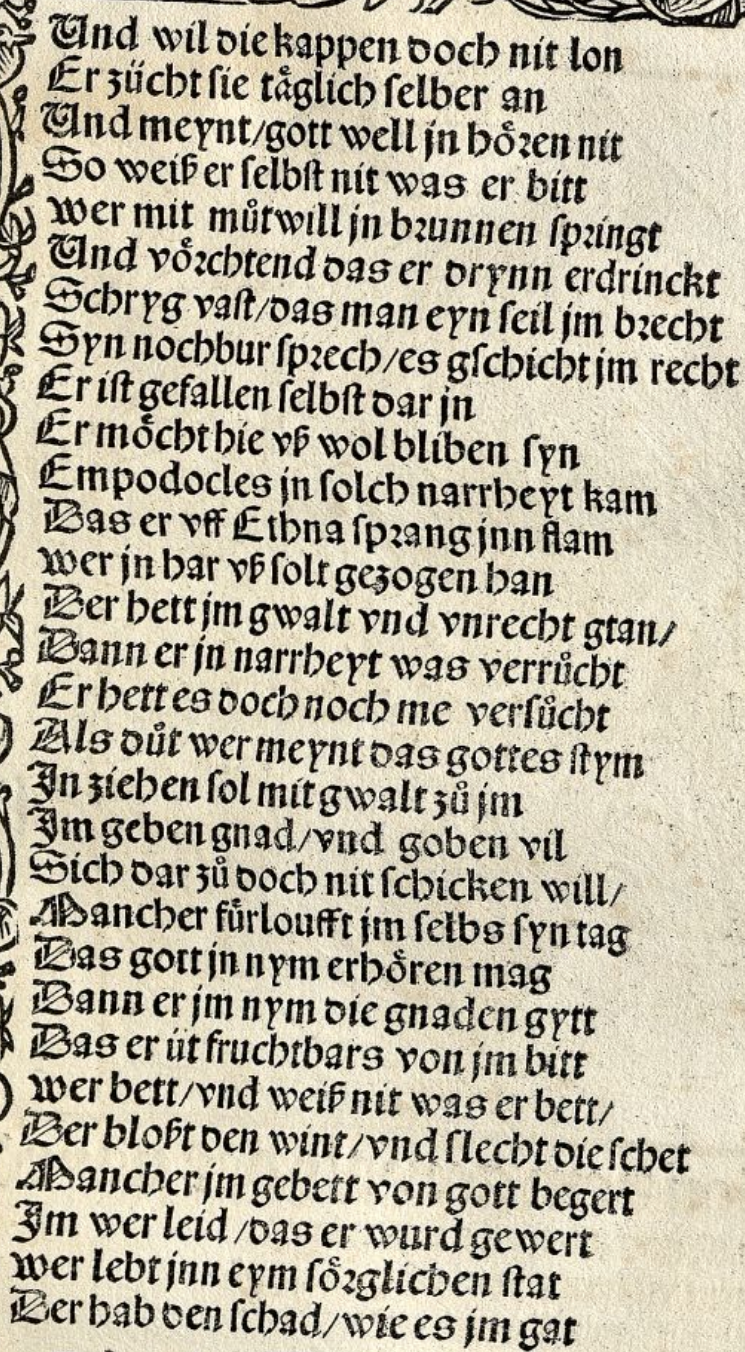 Und wil die kappen doch nit lon
Er zücht sie taͤglich selber an
Und meynt/gott well jn hoͤren nit
So weiß er selbst nit was er bitt
wer mit muͦtwill jn brunnen springt
Und voͤrchtend das er drynn erdrinckt
Schryg vast/das man eyn seil jm brecht
Syn nochbur sprech/es gschicht jm recht
Er ist gefallen selbst dar jn
Er moͤcht hie vß wol bliben syn
Empodocles jn solch narrheyt kam
Das er vff Ethna sprang jnn flam
wer jn har vß solt gezogen han
Der hett jm gwalt vnd vnrecht gtan/
Dann er jn narrheyt was verruͦcht
Er hett es doch noch me versuͦcht
Als duͦt wer meynt das gottes stym
In ziehen sol mit gwalt zuͦ jm
Im geben gnad/vnd goben vil
Sich dar zuͦ doch nit schicken will/
Mancher fürloufft jm selbs syn tag
Das gott jn nym erhoͤren mag
Dann er jm nym die gnaden gytt
Das er üt fruchtbars von jm bitt
wer bett/vnd weiß nit was er bett/
Der bloßt den wint/vnd slecht die schet
Mancher jm gebett von gott begert
Im wer leid/das er wurd gewert
wer lebt jnn eym soͤrglichen stat
Der hab den schad/wie es jm gat